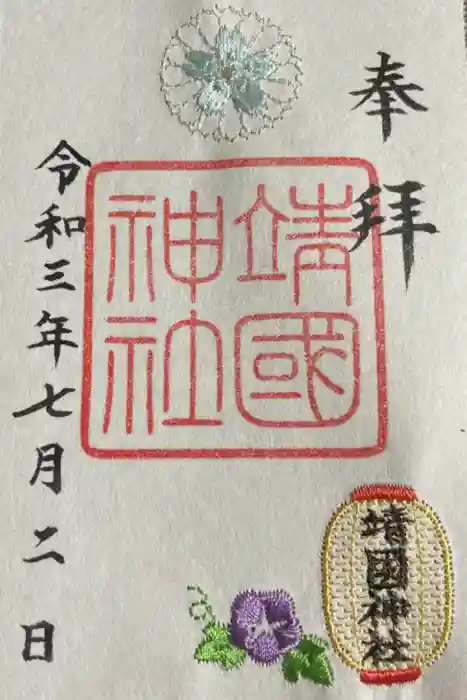 奉拝
靖國
神社
令和三年七月二日
靖國神社